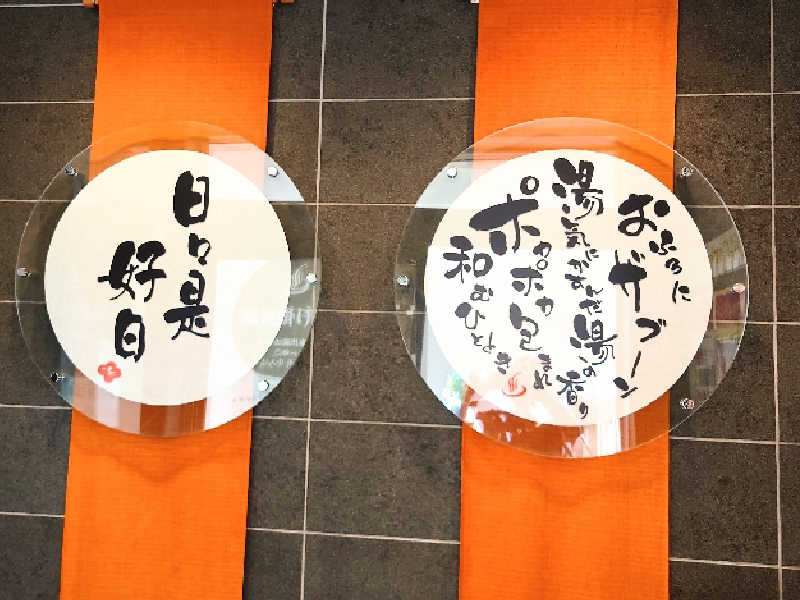 日々是
好日
おふろに
ザブーン
湯気にかすんだ湯の香り
ポカポカ包まれ
和むひととき